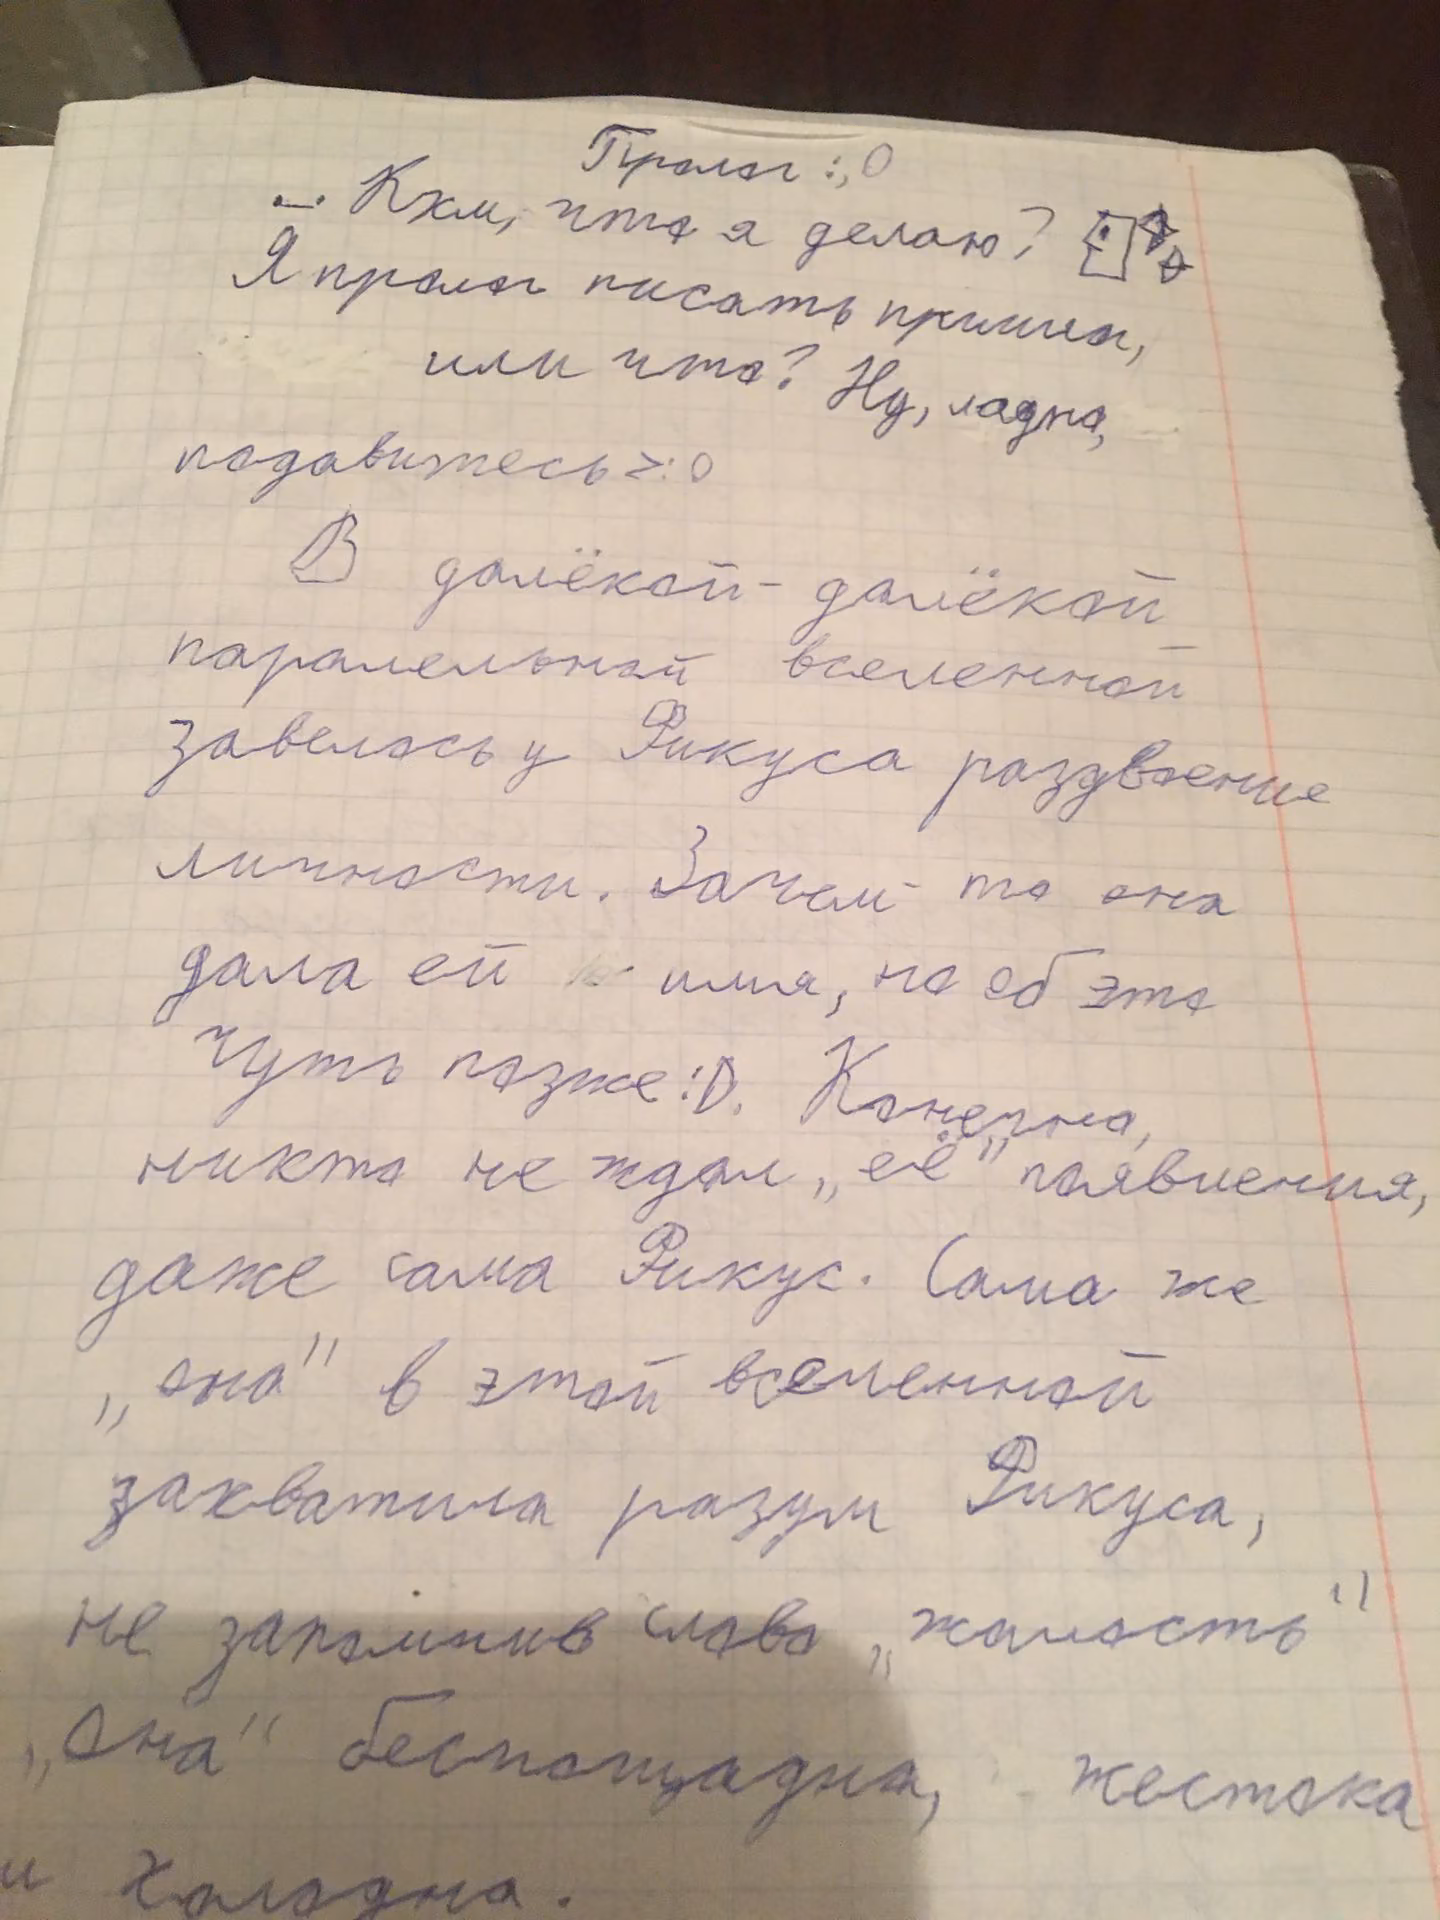 Пролог :,0
... Кхм, что я делаю?
Я пролог писать пришла,
или что? Ну, ладно,
подавитесь >:0
В далёкой-далёкой
паралельной вселенной
завелось у Рикуса раздвоение
личности. Зачем-то она
дала ей имя, но об это
чуть позже :D. Конечно,
никто не ждал „её" появления,
даже сама Рикус. Сама же
„она" в этой вселенной
захватила разум Рикуса,
не запомнив слово „жалость"
„Она" беспощадна, жестока
и холодна.